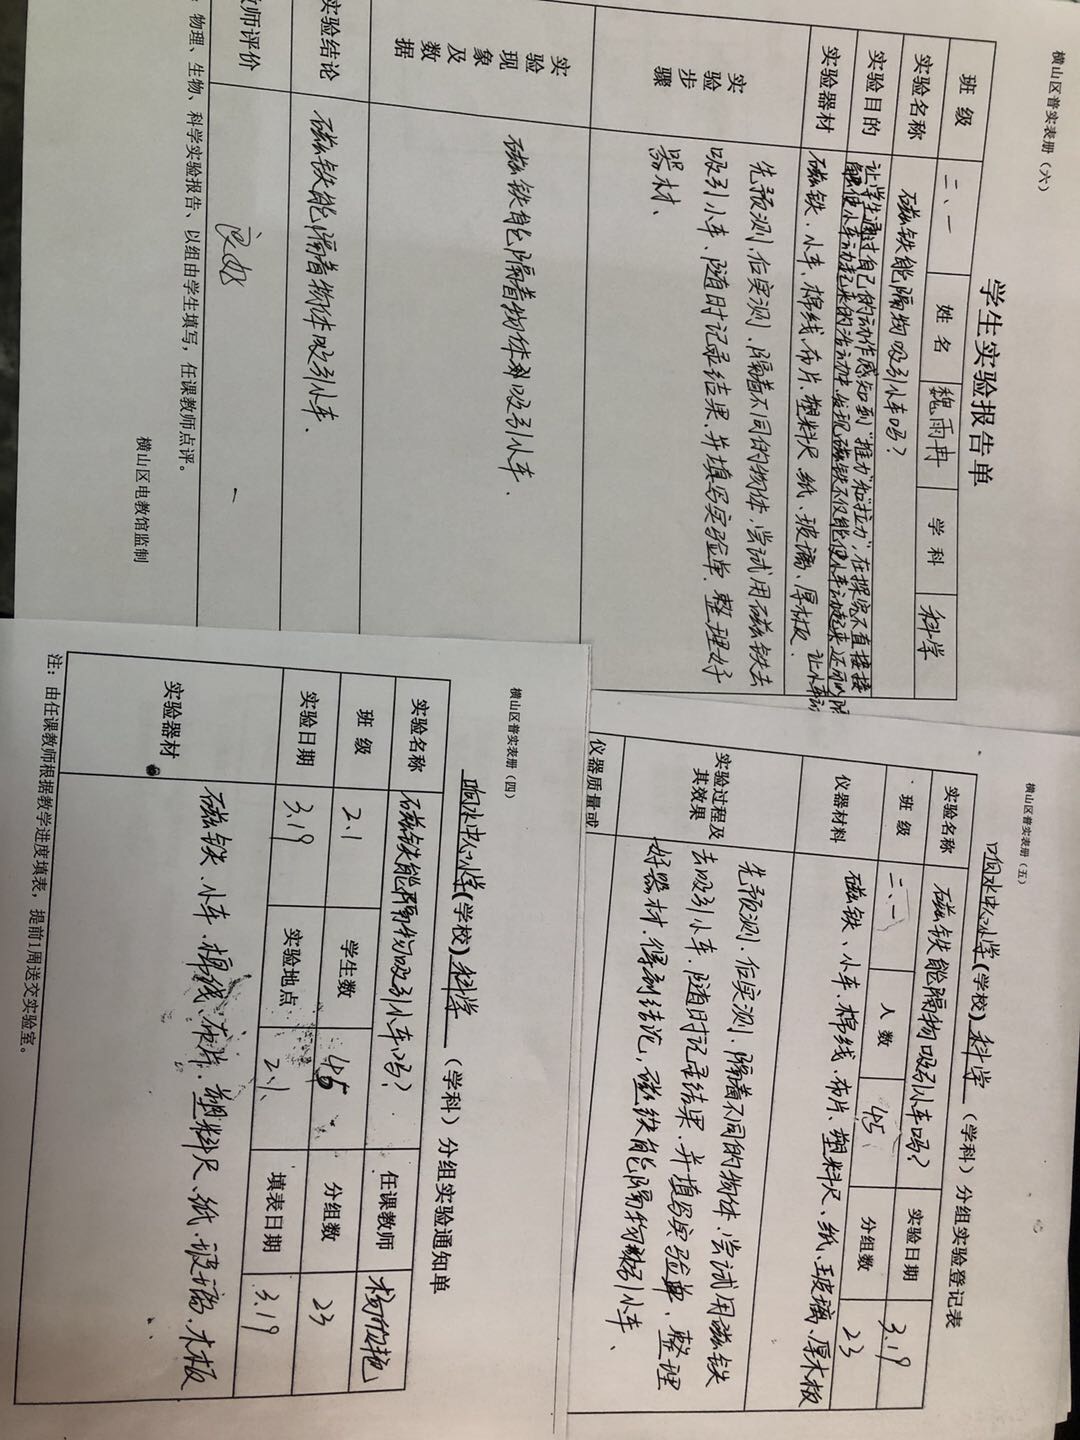 横山区普实表册（六）
学生实验报告单
班 级 二、一 姓 名 魏雨冉 学 科 科学
实验名称 磁铁能隔物吸引小车吗？
实验目的 让学生通过自己的动作感知到“推力”和“拉力”，在探究不直接接
触使小车动起来的活动中，发现磁铁不仅能使小车动起来还可以隔
实验器材 磁铁、小车、棉线、布片、塑料尺、纸、玻璃、厚木板、
实验步骤 先预测、后实测、隔着不同的物体、尝试用磁铁去
吸引小车、随时记录结果、并填写实验单、整理好
器材、
实验现象及数据 磁铁能隔着物体吸引小车.
实验结论 磁铁能隔着物体吸引小车.
师评价 良好
：物理、生物、科学实验报告、以组由学生填写，任课教师点评。
横山区电教馆监制
横山区普实表册（五）
响水中心小学(学校) 科学 （学科）分组实验登记表
实验名称 磁铁能隔物吸引小车吗？ 实验日期 3.19
班 级 二、一 人 数 45 分组数 23
仪器材料 磁铁、小车、棉线、布片、塑料尺、纸、玻璃、厚木板
实验过程及其效果 先预测、后实测、隔着不同的物体、尝试用磁铁
去吸引小车、随时记录结果、并填写实验单、整理
好器材、得到结论，磁铁能隔物吸引小车、
仪器质量或
横山区普实表册（四）
响水中心小学(学校) 科学 （学科）分组实验通知单
实验名称 磁铁能隔物吸引小车吗？ 任课教师
班 级 2.1 学生数 45 分组数 23
实验日期 3.19 实验地点 2.1 填表日期 3.19
实验器材 磁铁、小车、棉线、布片、塑料尺、纸、玻璃、木板
注：由任课教师根据教学进度填表，提前1周送交实验室。